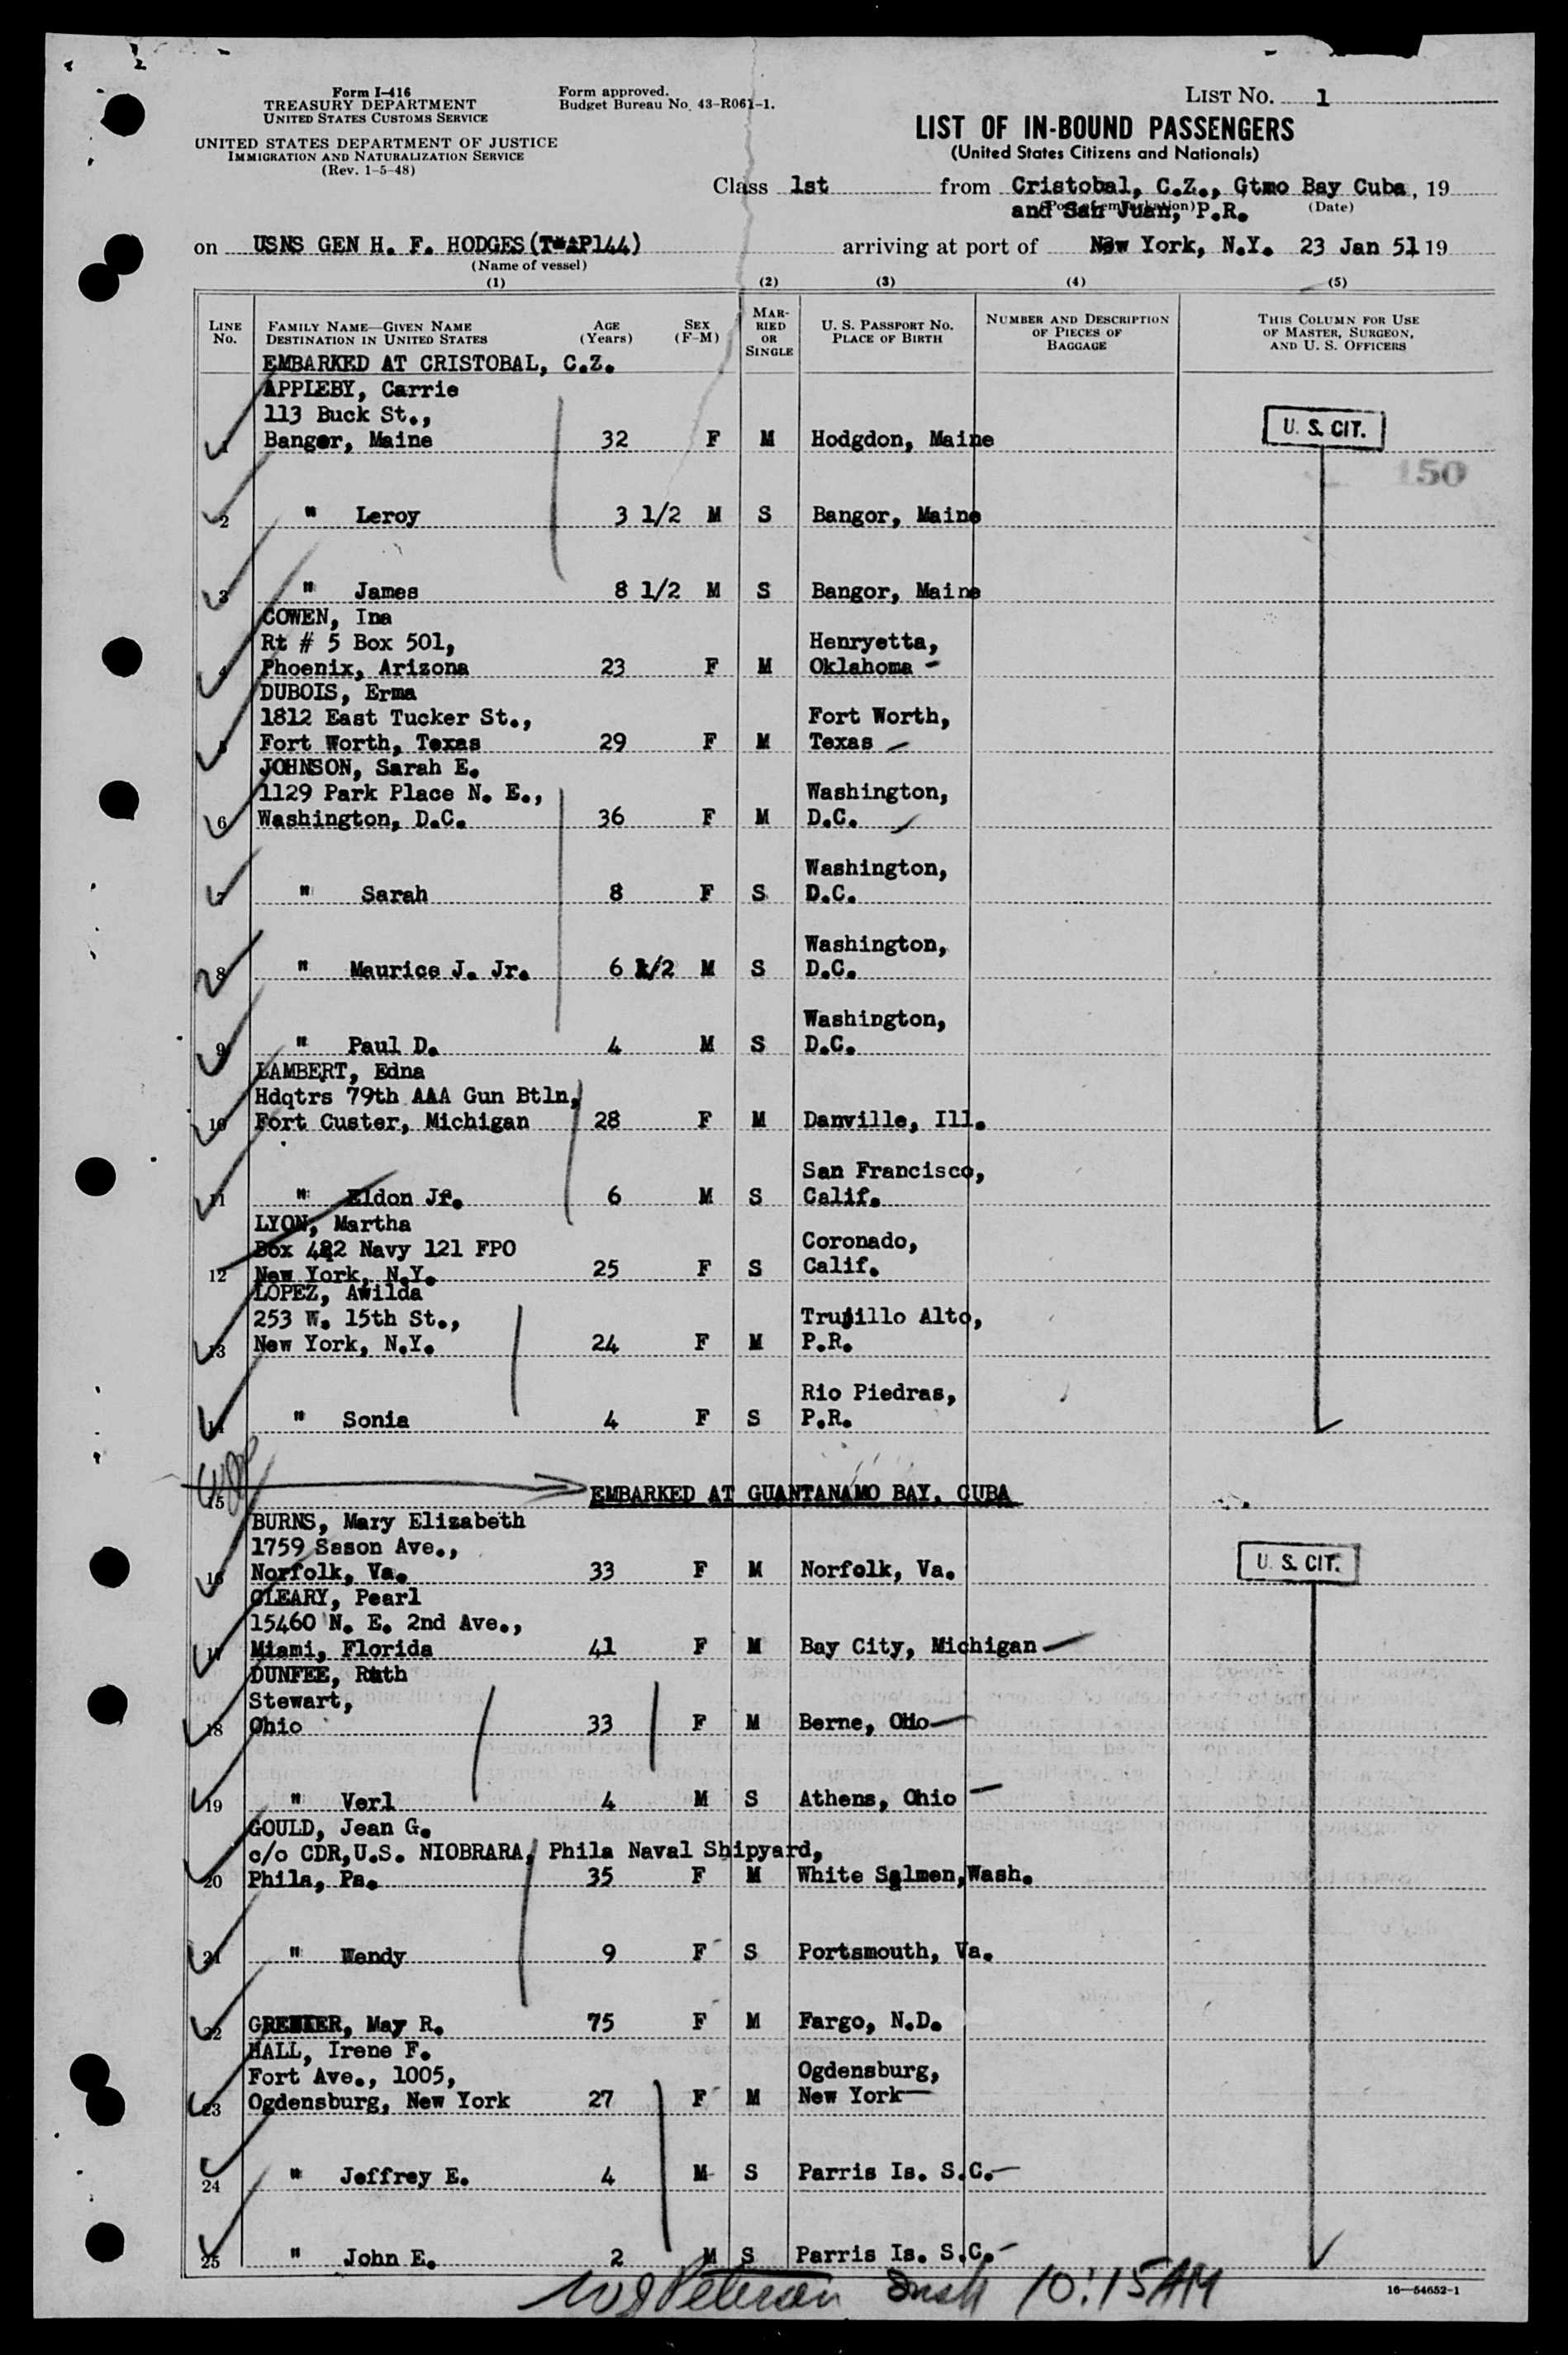 Form I-416
TREASURY DEPARTMENT
UNITED STATES CUSTOMS SERVICE
UNITED STATES DEPARTMENT OF JUSTICE
IMMIGRATION AND NATURALIZATION SERVICE
(Rev. 1-5-48)
Form approved.
Budget Bureau No. 43-R061-1.
LIST NO. 1
LIST OF IN-BOUND PASSENGERS
(United States Citizens and Nationals)
Class 1st from Cristobal, C.Z., Gtmo Bay Cuba, 19
and San Juan, P.R. (Port of embarkation) (Date)
on USNS GEN H. F. HODGES (T-AP144) arriving at port of New York, N.Y. 23 Jan 51 19
(Name of vessel)
(1) (2) (3) (4) (5)
LINE No. FAMILY NAME—GIVEN NAME DESTINATION IN UNITED STATES AGE (Years) SEX (F-M) MARRIED OR SINGLE U. S. PASSPORT NO. PLACE OF BIRTH NUMBER AND DESCRIPTION OF PIECES OF BAGGAGE THIS COLUMN FOR USE OF MASTER, SURGEON, AND U. S. OFFICERS
EMBARKED AT CRISTOBAL, C.Z.
APPLEBY, Carrie
113 Buck St.,
1 Bangor, Maine 32 F M Hodgdon, Maine U. S. CIT.
150
2 " Leroy 3 1/2 M S Bangor, Maine
3 " James 8 1/2 M S Bangor, Maine
COWEN, Ina
Rt # 5 Box 501, Henryetta,
4 Phoenix, Arizona 23 F M Oklahoma
DUBOIS, Erma
1812 East Tucker St., Fort Worth,
5 Fort Worth, Texas 29 F M Texas
JOHNSON, Sarah E.
1129 Park Place N. E., Washington,
6 Washington, D.C. 36 F M D.C.
Washington,
7 " Sarah 8 F S D.C.
Washington,
8 " Maurice J. Jr. 6 1/2 M S D.C.
Washington,
9 " Paul D. 4 M S D.C.
LAMBERT, Edna
Hdqtrs 79th AAA Gun Btln,
10 Fort Custer, Michigan 28 F M Danville, Ill.
San Francisco,
11 " Eldon Jr. 6 M S Calif.
LYON, Martha
Box 482 Navy 121 FPO Coronado,
12 New York, N.Y. 25 F S Calif.
LOPEZ, Awilda
253 W. 15th St., Trujillo Alto,
13 New York, N.Y. 24 F M P.R.
Rio Piedras,
14 " Sonia 4 F S P.R.
15 EMBARKED AT GUANTANAMO BAY, CUBA
BURNS, Mary Elizabeth
1759 Sason Ave.,
16 Norfolk, Va. 33 F M Norfolk, Va. U. S. CIT.
CLEARY, Pearl
15460 N. E. 2nd Ave.,
17 Miami, Florida 41 F M Bay City, Michigan
DUNFEE, Ruth
Stewart,
18 Ohio 33 F M Berne, Ohio
19 " Verl 4 M S Athens, Ohio
GOULD, Jean G.
c/o CDR, U.S. NIOBRARA, Phila Naval Shipyard,
20 Phila, Pa. 35 F M White Salmen, Wash.
21 " Wendy 9 F S Portsmouth, Va.
22 GRENIER, May R. 75 F M Fargo, N.D.
HALL, Irene F.
Fort Ave., 1005, Ogdensburg,
23 Ogdensburg, New York 27 F M New York
24 " Jeffrey E. 4 M S Parris Is. S.C.
25 " John E. 2 M S Parris Is. S.C.
Peterson 10:15 AM
16—54652-1